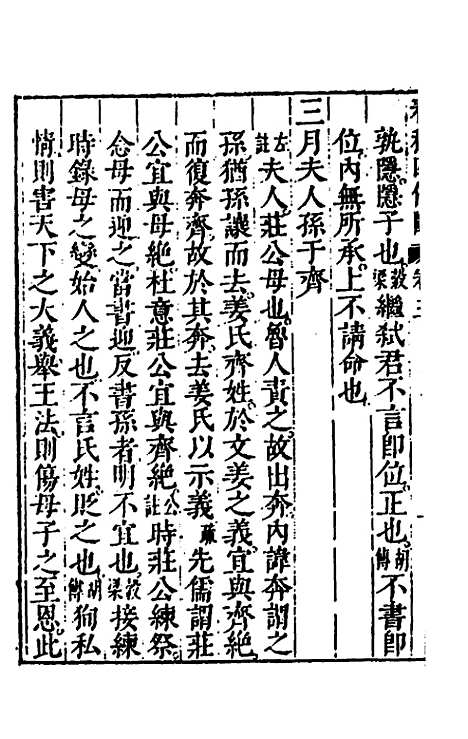 孰隱隱子也穀梁繼弑君不言卽位正也胡傳不書卽
位内無所承上不請命也
三月夫人孫于齊
左註夫人莊公母也魯人責之故出奔内諱奔謂之
孫猶孫讓而去姜氏齊姓於文姜之義宜與齊絶
而復奔齊故於其奔去姜氏以示義疏先儒謂莊
公宜與母絶杜意莊公宜與齊絶公註時莊公練祭
念母而迎之當書迎反書孫者明不宜也穀梁接練
時錄母之變始人之也不言氏姓貶之也胡傳狥私
情則害天下之大義舉王法則傷母子之至恩此